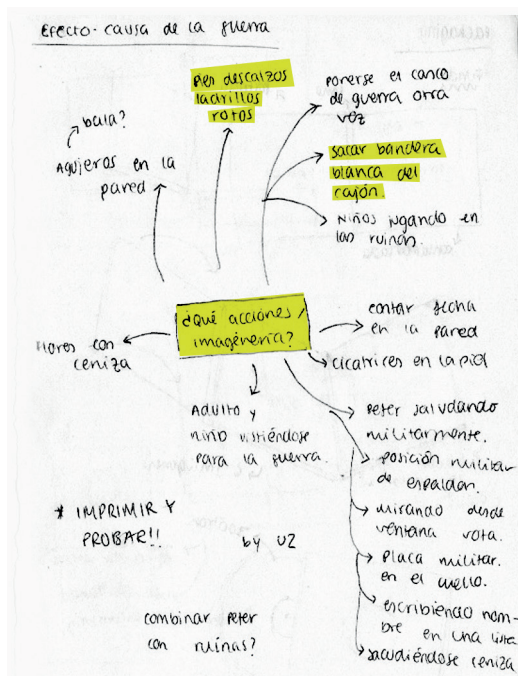 Efecto-causa de la guerra
Pies descalzos
ladrillos
rotos
Ponerse el casco
de guerra otra
vez
bala?
sacar bandera
blanca del
cajón.
Agujeros en la
pared
Niños jugando en
las ruinas.
¿Qué acciones /
imaginería?
contar fecha
en la pared
Flores con
ceniza
cicatrices en la piel
Adulto y
niño vistiéndose
para la guerra.
Peter saludando
militarmente.
posición militar
de espaldas.
mirando desde
ventana rota.
Placa militar.
en el cuello.
escribiendo nom-
bre en una lista
sacudiéndose ceniza
* IMPRIMIR Y
PROBAR!!
by U2
combinar Peter
con ruinas?